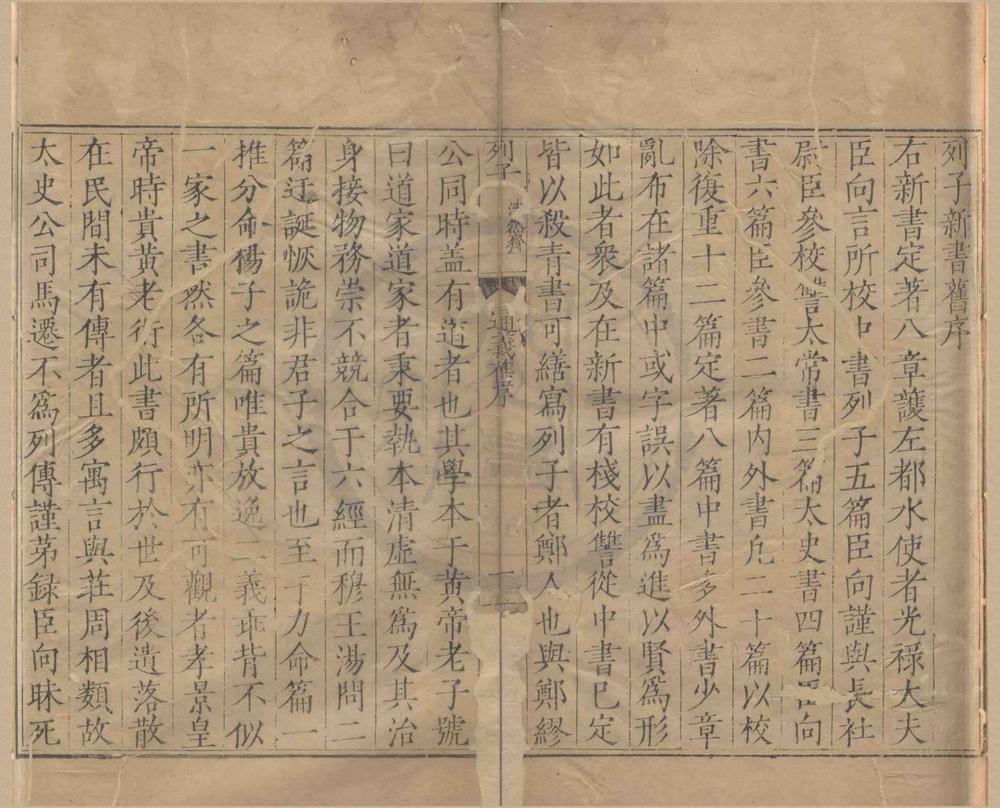 列子新書舊序
右新書定著八章護左都水使者光祿大夫
臣向言所校中書列子五篇臣向謹與長社
尉臣參校讐太常書三篇太史書四篇臣向
書六篇臣參書二篇內外書凡二十篇以校
除復重十二篇定著八篇中書多外書少章
亂布在諸篇中或字誤以盡為進以賢為形
如此者衆及在新書有棧校讐從中書已定
皆以殺青書可繕寫列子者鄭人也與鄭繆
列子
通義舊序
一
公同時盖有道者也其學本于黃帝老子號
曰道家道家者秉要執本清虛無為及其治
身接物務崇不競合于六經而穆王湯問二
篇迂誕恢詭非君子之言也至于力命篇一
推分命楊子之篇唯貴放逸二義乖背不似
一家之書然各有所明亦有可觀者孝景皇
帝時貴黃老術此書頗行於世及後遺落散
在民間未有傳者且多寓言與莊周相類故
太史公司馬遷不為列傳謹苐録臣向昧死